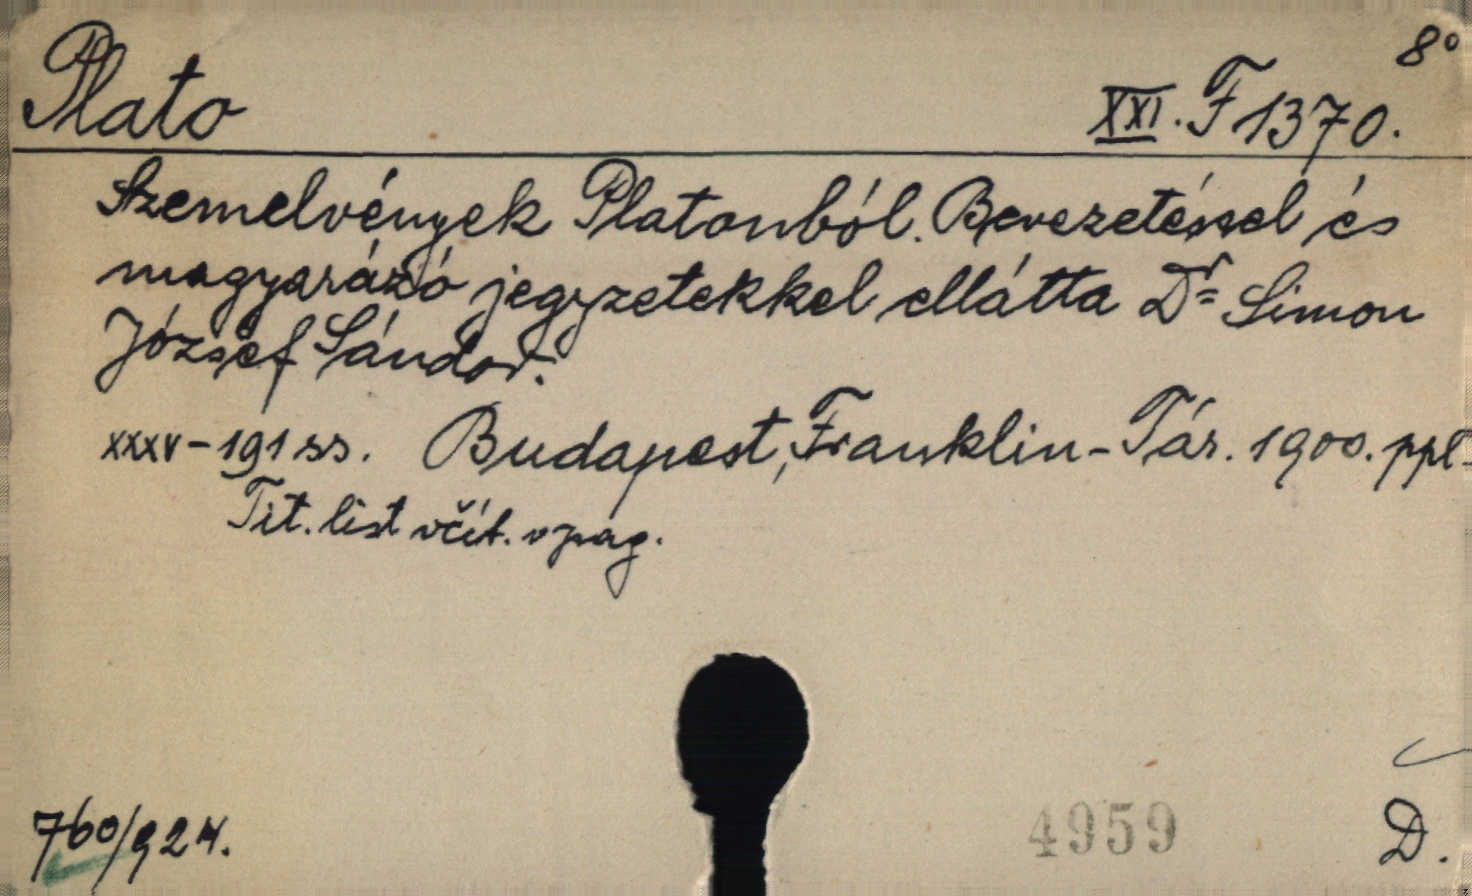 8°
Plato XXI. F 1370.
Szemelvények Platonból. Bevezetéssel és
magyarázó jegyzetekkel ellátta Dr Simon
József Sándor.
xxxv–191 ss. Budapest, Franklin-Tár. 1900. ppl-
Tit. list včít. v pag.
760/924.
4959
D.